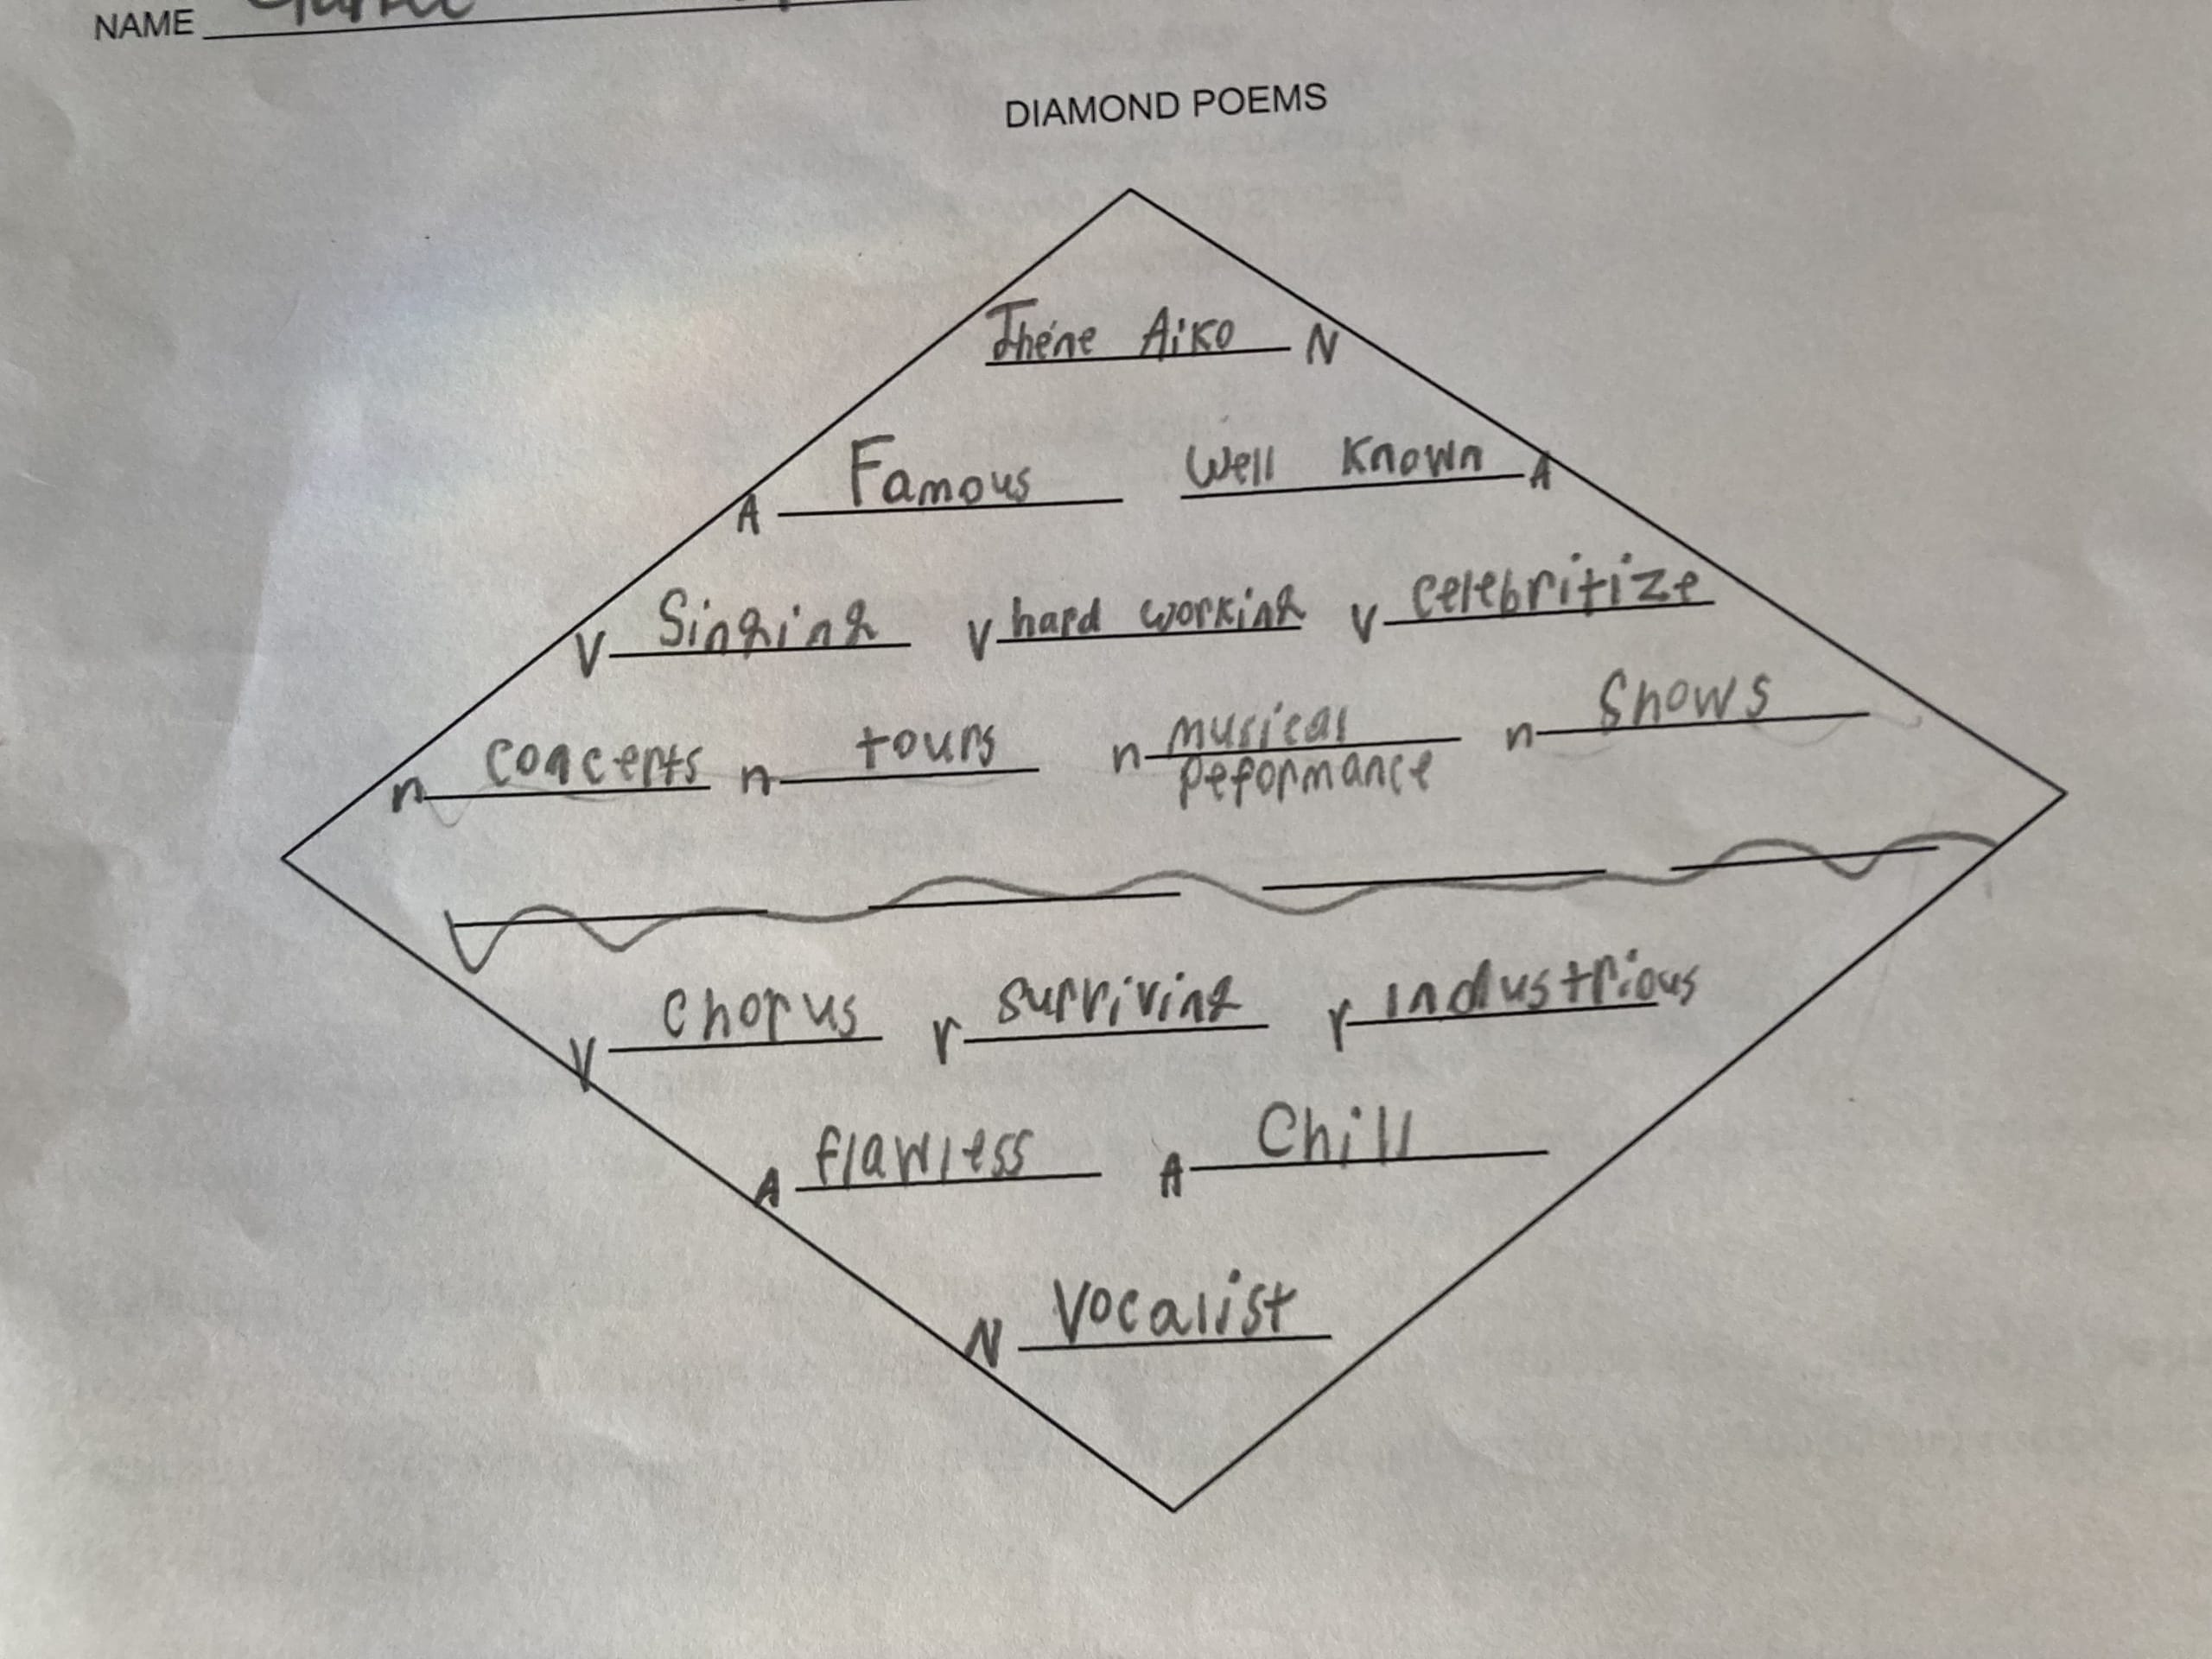 NAME
DIAMOND POEMS
Jhéne Aiko N
A Famous Well Known A
V Singing V hard working V celebritize
n concerts n tours n musical peformance n Shows
V Chorus r surviving r industrious
A flawless A Chill
N Vocalist